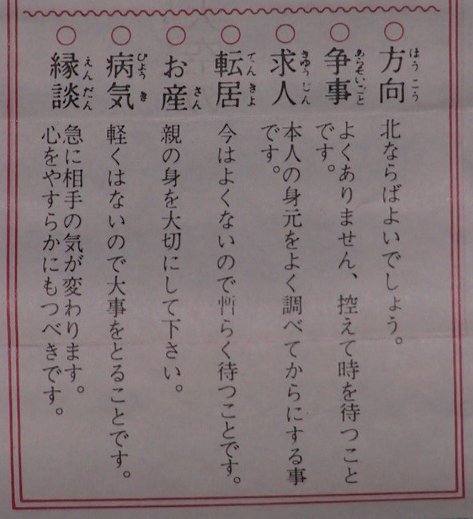 ○方向 北ならばよいでしょう。
○争事 よくありません、控えて時を待つこと
です。
○求人 本人の身元をよく調べてからにする事
です。
○転居 今はよくないので暫らく待つことです。
○お産 親の身を大切にして下さい。
○病気 軽くはないので大事をとることです。
○縁談 急に相手の気が変わります。
心をやすらかにもつべきです。
はうこう
あらそいごと
きゆうじん
てんきよ
さん
びようき
えんだん